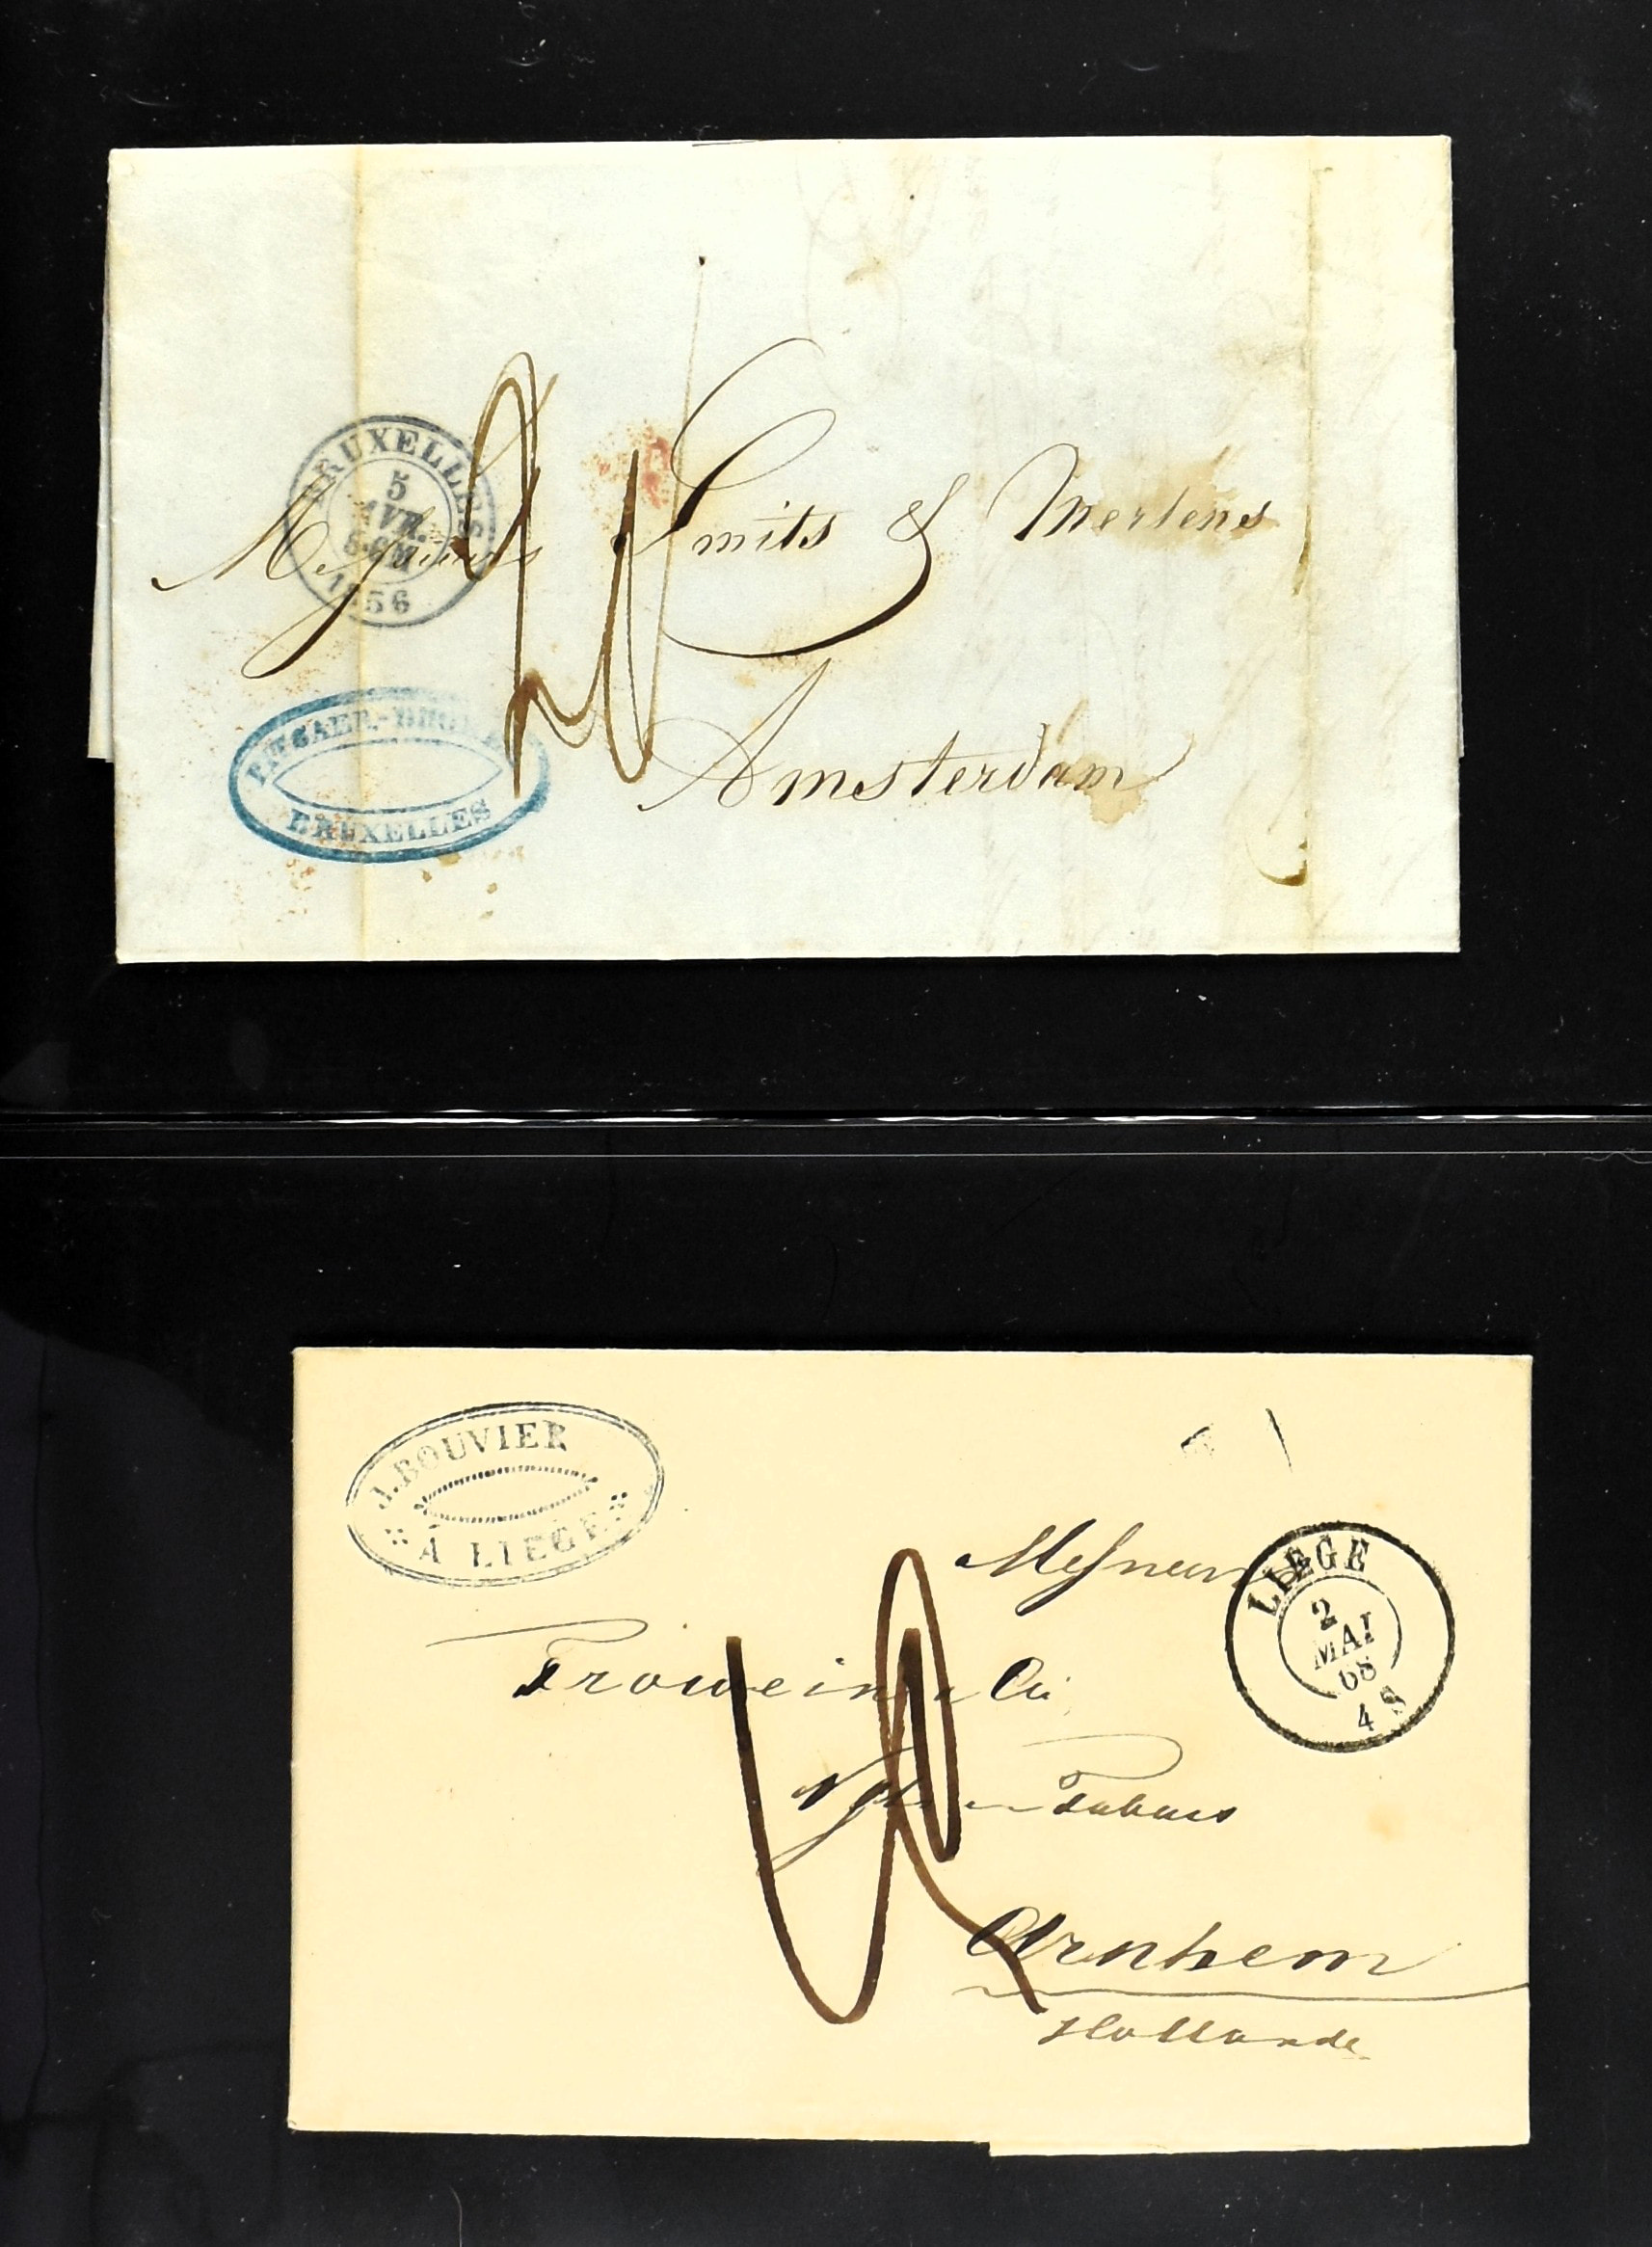 BRUXELLES
5
AVR.
1856
Messieurs Smits & Mertens
Amsterdam
BRUXELLES
J. BOUVIER
À LIEGE
LIEGE
2
MAI
68
4 S
Messieurs
Frowein & Cie
Arnhem
Hollande